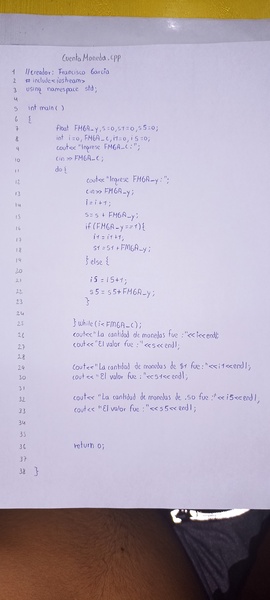 CuentaMoneda.cpp
1 //creador: Francisco García
2 #include<iostream>
3 using namespace std;
4
5 int main()
6 {
7 float FMGA_y, s=0, s1=0, s5=0;
8 int i=0, FMGA_c, i1=0, i5=0;
9 cout<<"Ingrese FMGA_c:";
10 cin>> FMGA_c;
11 do{
12 cout<<"Ingrese FMGA_y:";
13 cin>> FMGA_y;
14 i=i+1;
15 s=s+FMGA_y;
16 if(FMGA_y==1){
17 i1=i1+1;
18 s1=s1+FMGA_y;
19 } else {
20
21 i5=i5+1;
22 s5=s5+FMGA_y;
23 }
24
25 } while(i<FMGA_c);
26 cout<<"La cantidad de monedas fue:"<<i<<endl;
27 cout<<"El valor fue:"<<s<<endl;
28
29 cout<<"La cantidad de monedas de $1 fue:"<<i1<<endl;
30 cout<<"El valor fue:"<<s1<<endl;
31
32 cout<<"La cantidad de monedas de .50 fue:"<<i5<<endl;
33 cout<<"El valor fue:"<<s5<<endl;
34
35
36 return 0;
37
38 }